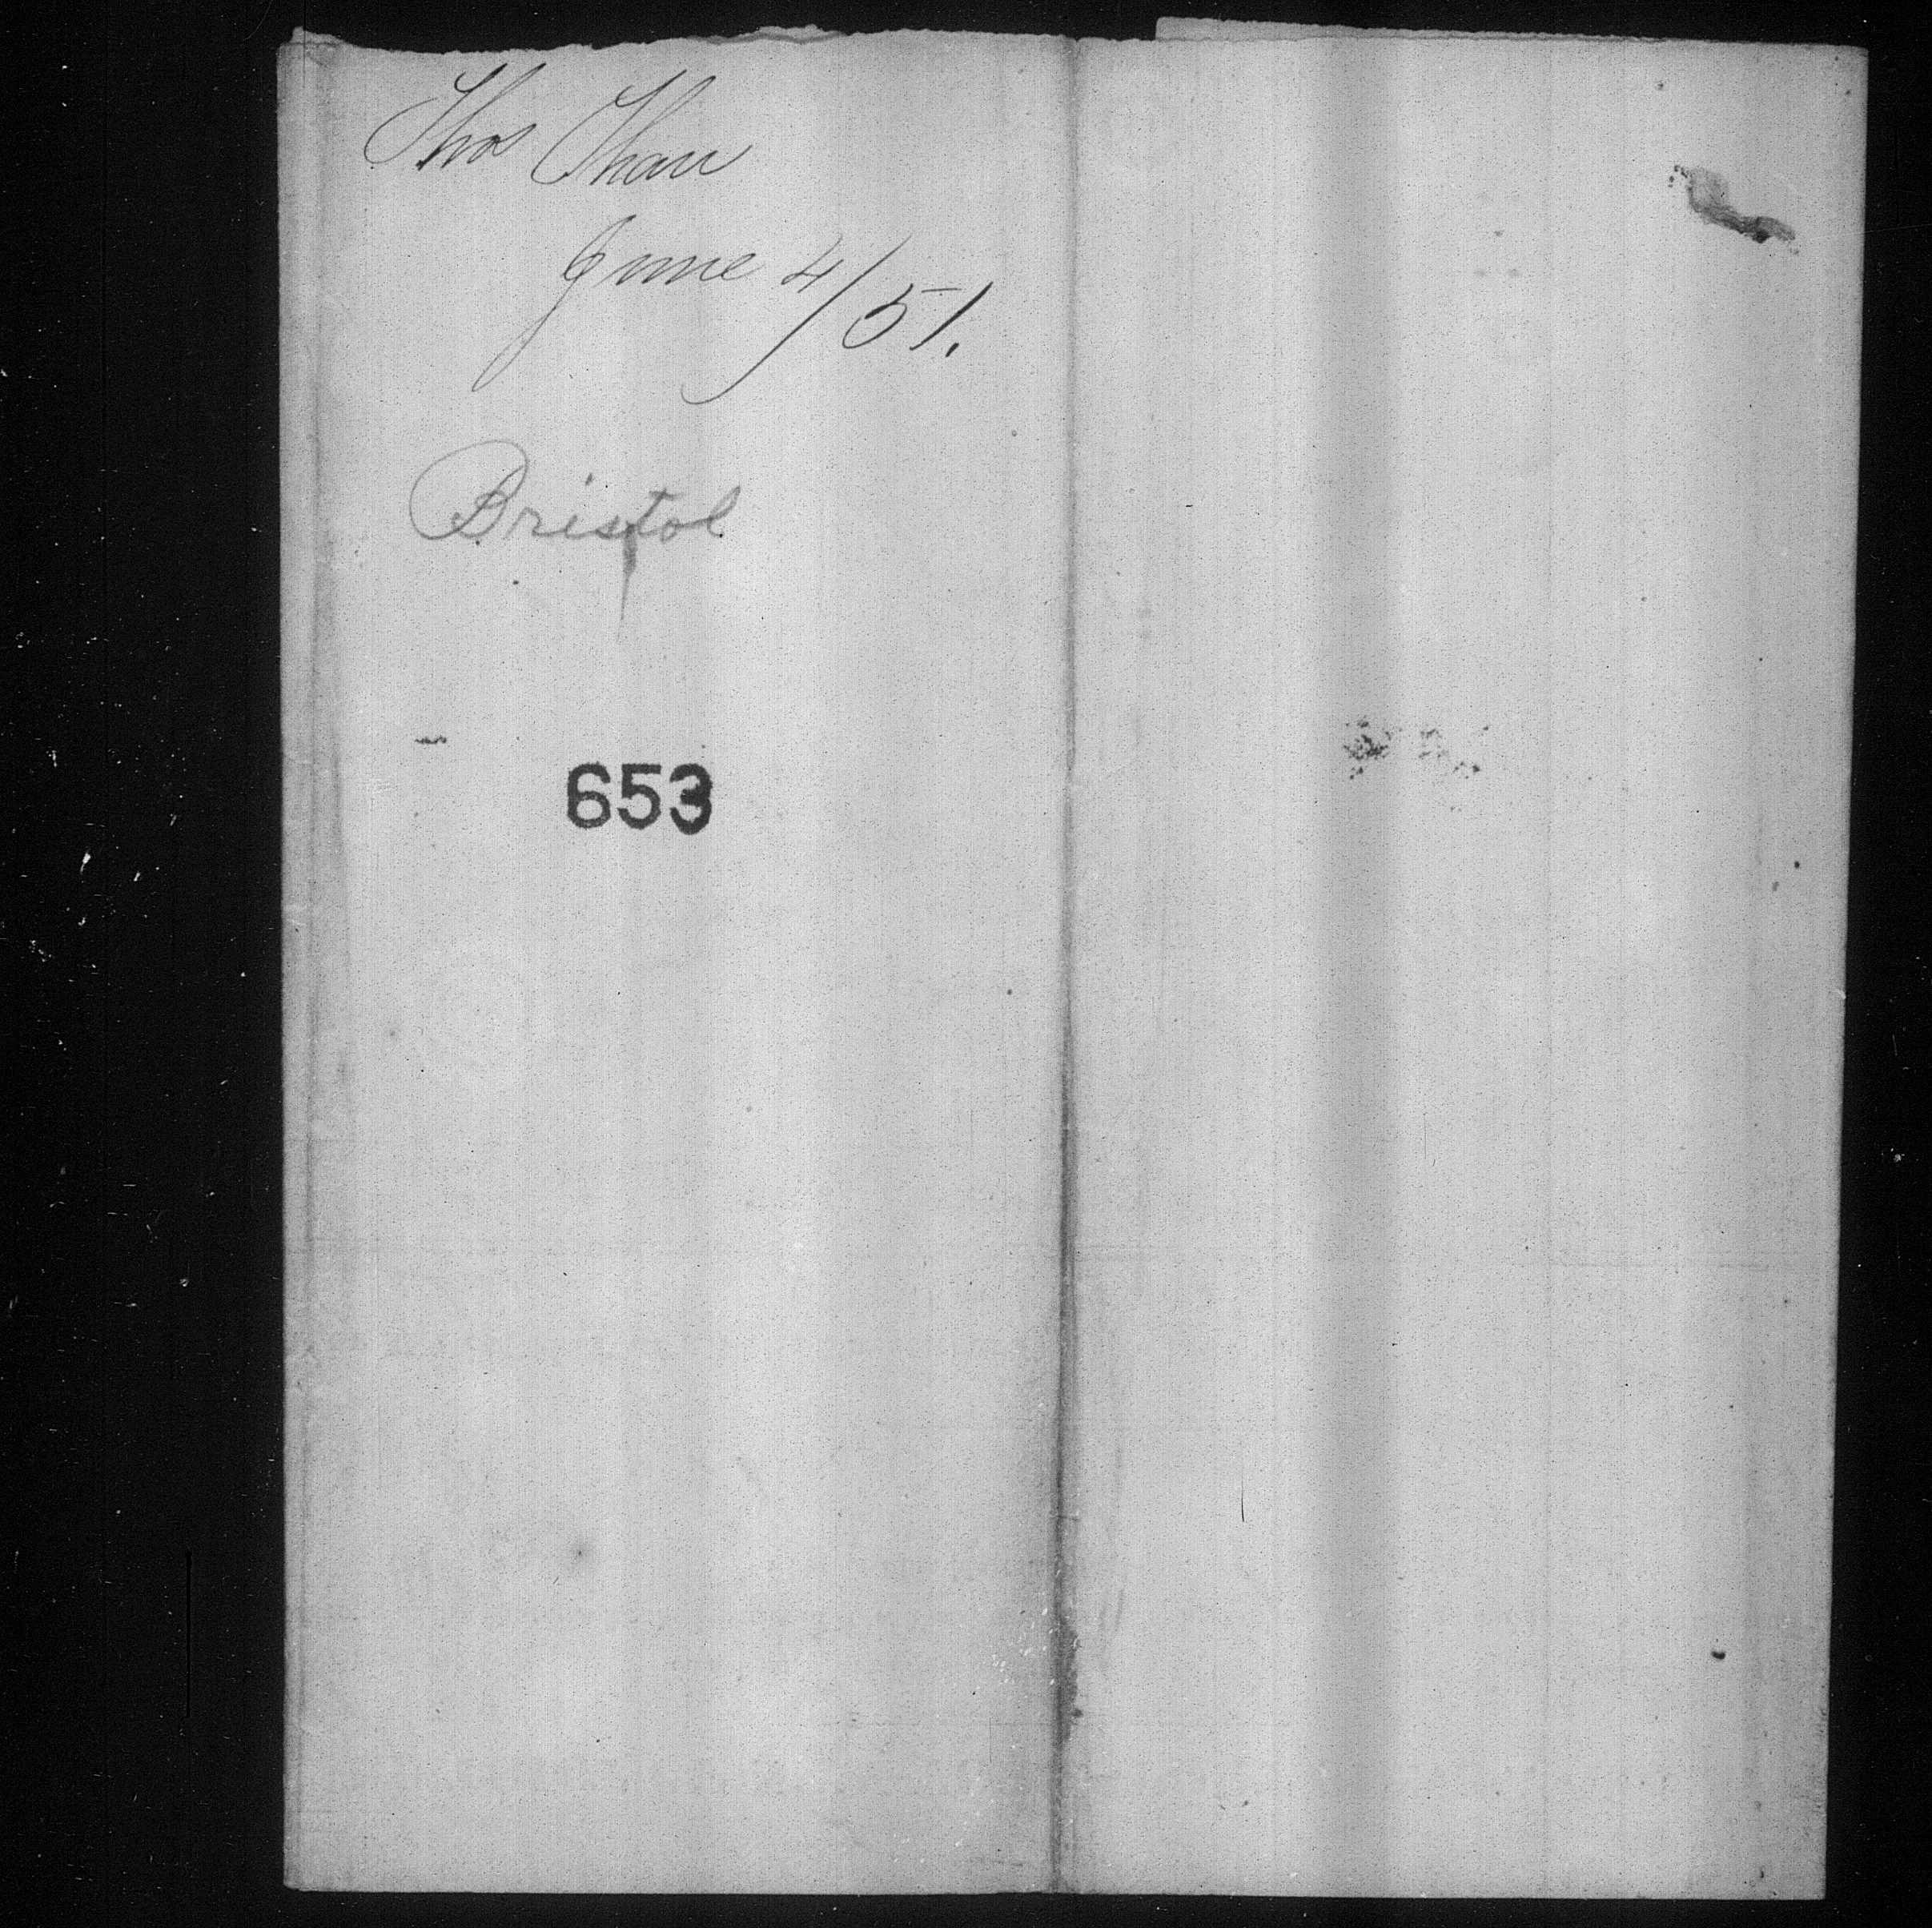 Thos Thaw
June 4/51.
Bristol
653